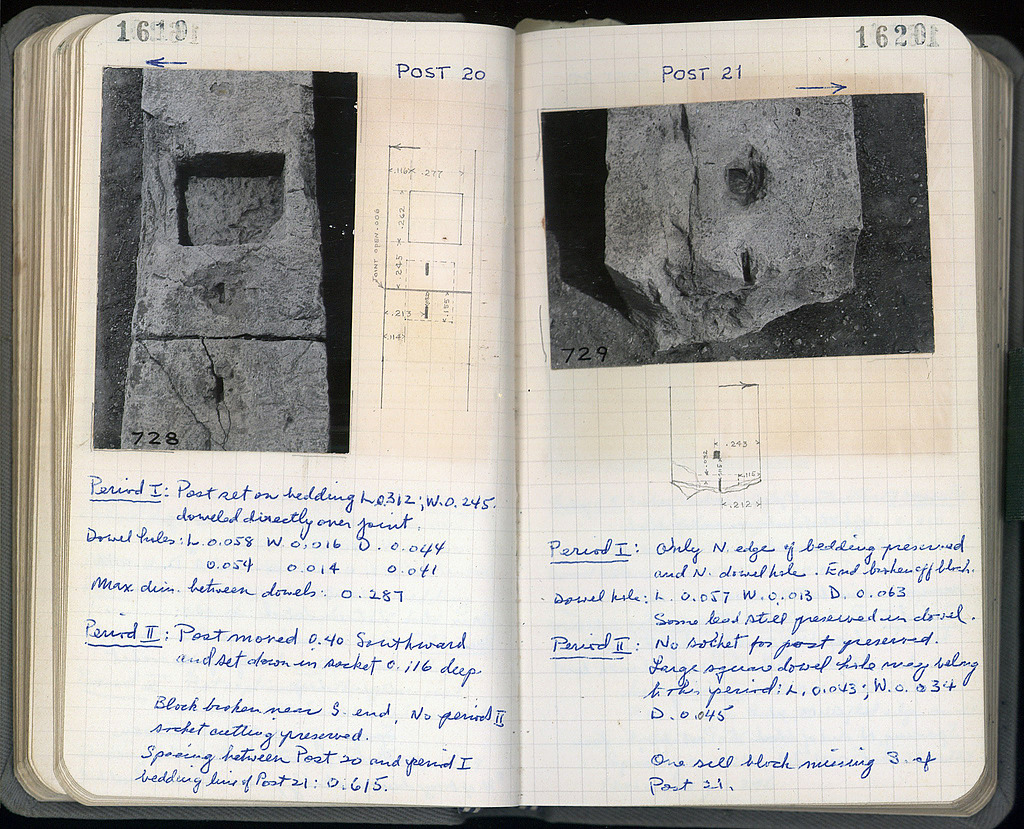 1619
POST 20
728
.116
.277
.262
.245
JOINT OPEN .006
.213
.155
.114
Period I: Post set on bedding L.0.312; W.0.245.
doweled directly over joint.
Dowel holes: L. 0.058 W 0.016 D. 0.044
0.054 0.014 0.041
Max dim. between dowels: 0.287
Period II: Post moved 0.40 Southward
and set down in socket 0.116 deep
Block broken near S. end. No period II
socket cutting preserved.
Spacing between Post 20 and period I
bedding line of Post 21: 0.615.
1620
POST 21
729
.243
.115
.212
Period I: Only N. edge of bedding preserved
and N. dowel hole. End broken off block.
Dowel hole: L. 0.057 W. 0.013 D. 0.063
Some lead still preserved in dowel.
Period II: No socket for post preserved.
Large square dowel hole may belong
to this period: L. 0.043; W. 0.034
D. 0.045
One sill block missing S. of
Post 21.